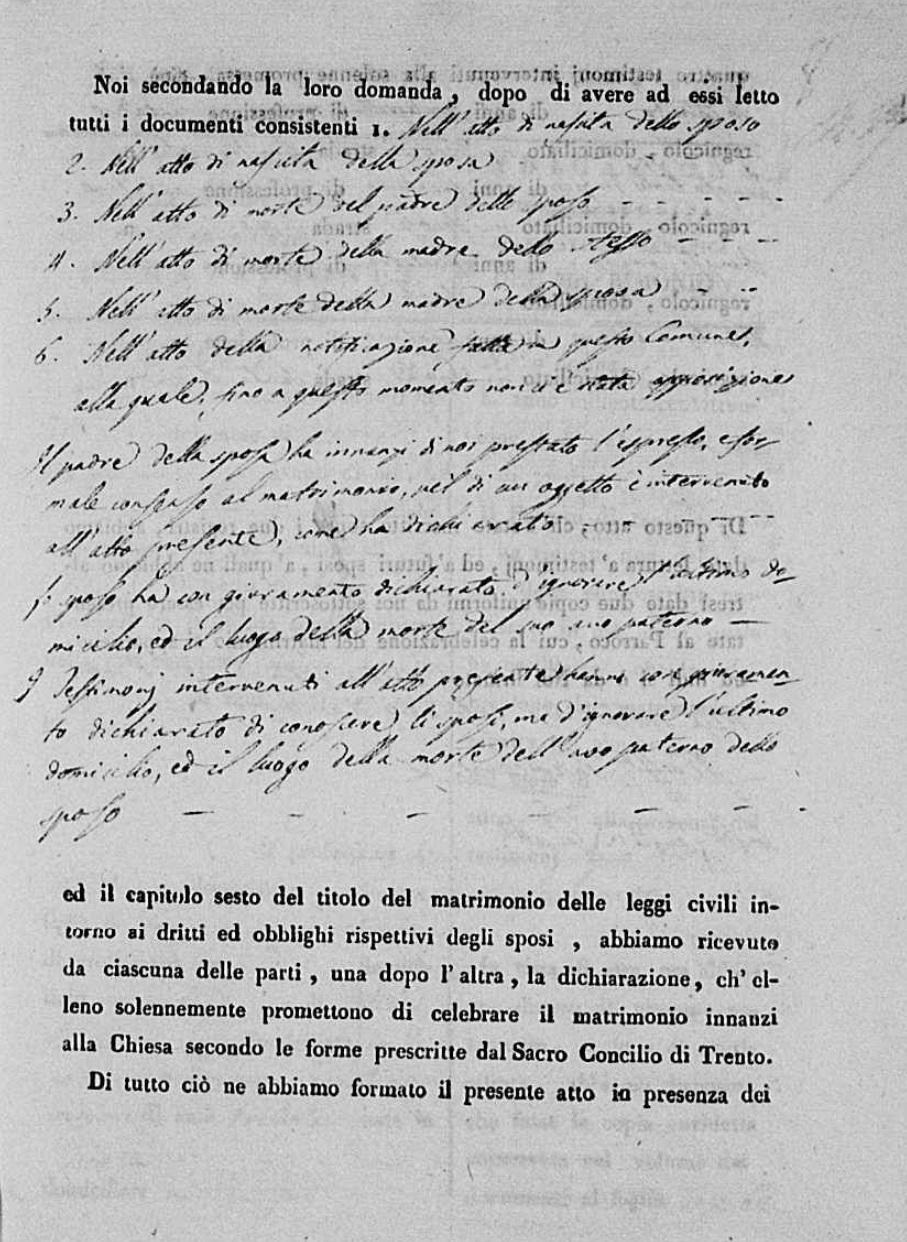 Noi secondando la loro domanda, dopo di avere ad essi letto
tutti i documenti consistenti 1. Nell'atto di nascita dello sposo
2. Nell'atto di nascita della sposa
3. Nell'atto di morte del padre dello sposo - - - -
4. Nell'atto di morte della madre dello stesso - - -
5. Nell'atto di morte della madre della sposa - -
6. Nell'atto della notificazione fatta in questo Comune,
alla quale, fino a questo momento non vi è stata opposizione
Il padre della sposa ha innanzi di noi prestato l'espresso, e for-
male consenso al matrimonio, nel di cui oggetto è intervenuto
all'atto presente, come ha dichiarato - - - -
Lo sposo ha con giuramento dichiarato d'ignorare l'ultimo do-
micilio, ed il luogo della morte del suo avo paterno —
I Testimonj intervenuti all'atto presente hanno con giuramen-
to dichiarato di conoscere li sposi, ma d'ignorare l'ultimo
domicilio, ed il luogo della morte dell'avo paterno dello
sposo — - - — - -
ed il capitolo sesto del titolo del matrimonio delle leggi civili in-
torno ai dritti ed obblighi rispettivi degli sposi, abbiamo ricevuto
da ciascuna delle parti, una dopo l'altra, la dichiarazione, ch'el-
leno solennemente promettono di celebrare il matrimonio innanzi
alla Chiesa secondo le forme prescritte dal Sacro Concilio di Trento.
Di tutto ciò ne abbiamo formato il presente atto in presenza dei